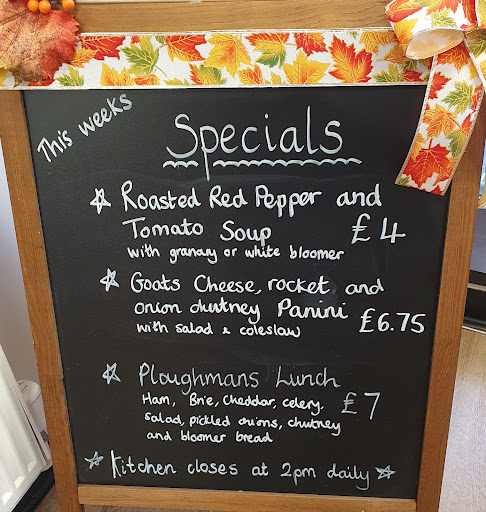 This weeks
Specials
Roasted Red Pepper and
Tomato Soup £4
with granary or white bloomer
Goats Cheese, rocket and
onion chutney Panini
with salad & coleslaw £6.75
Ploughmans Lunch
Ham, Brie, Cheddar, celery, £7
salad, pickled onions, chutney
and bloomer bread
Kitchen closes at 2pm daily